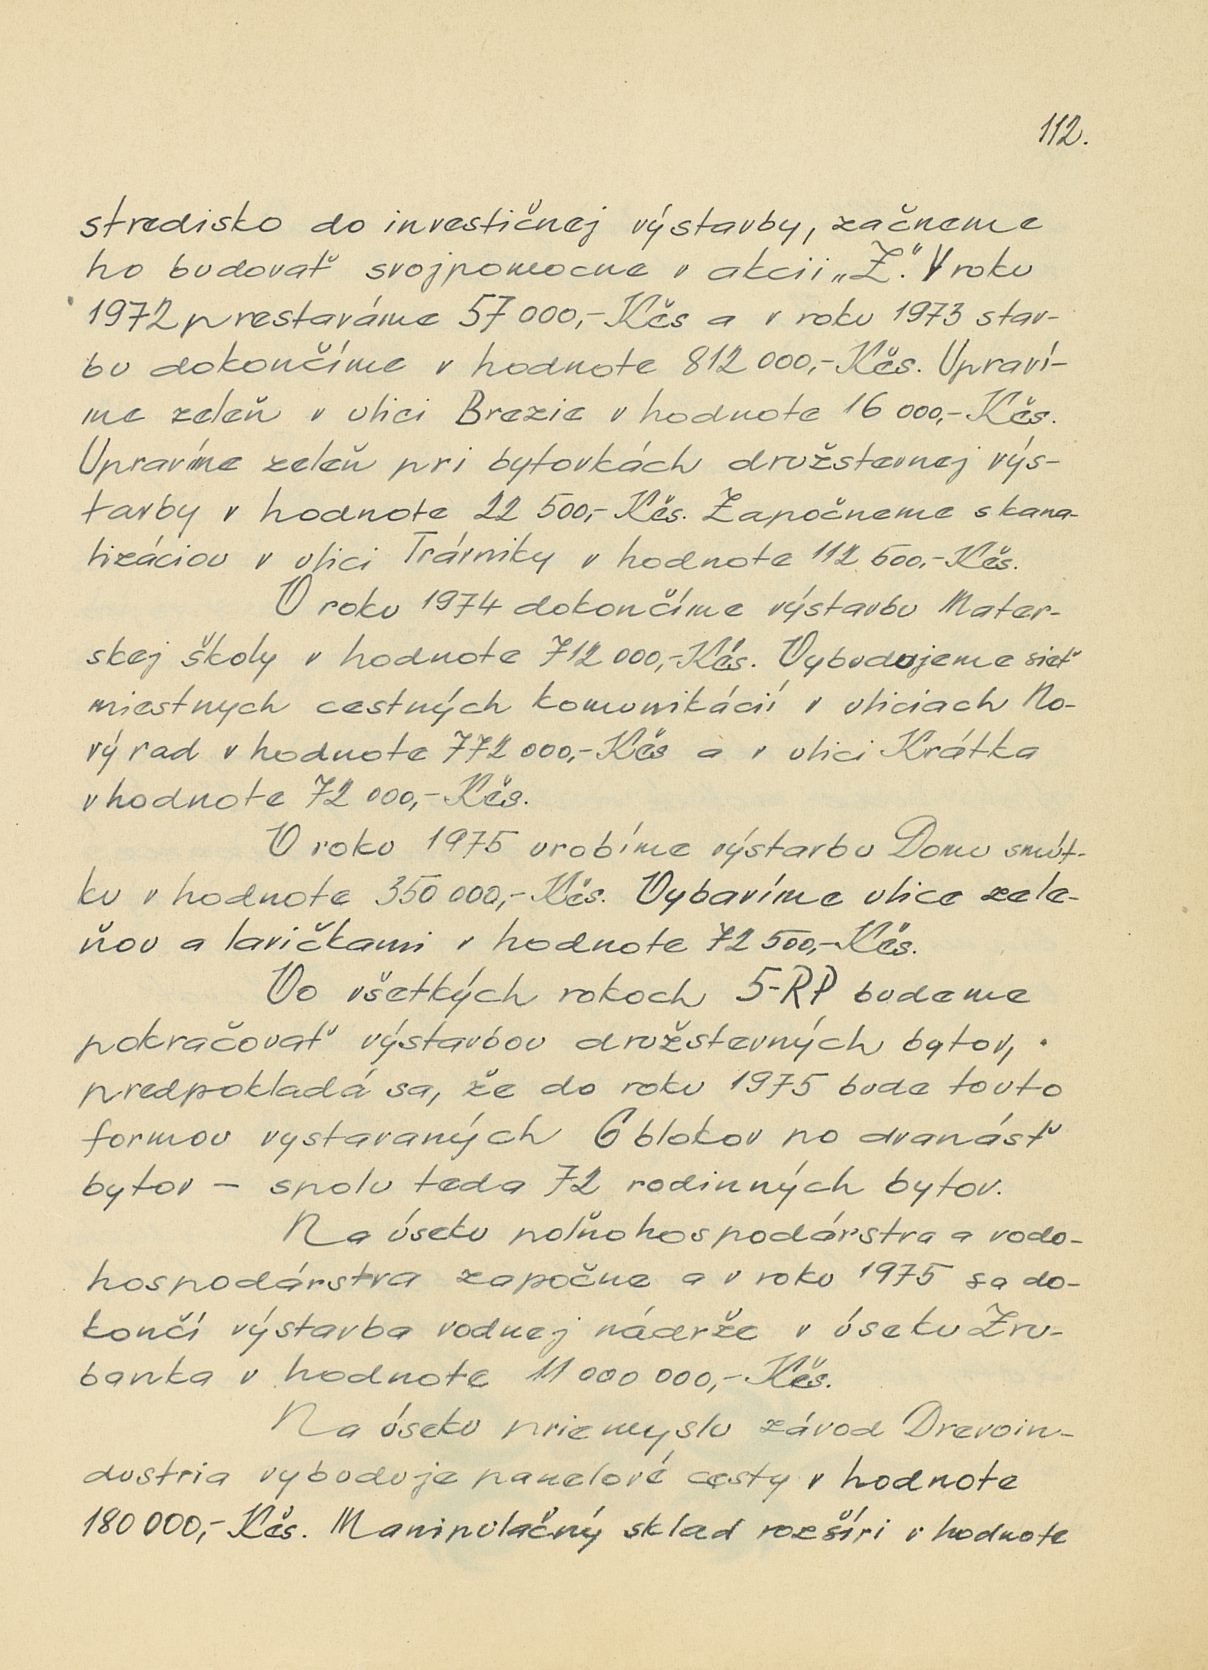 112.
stredisko do investičnej výstavby, začneme
ho budovať svojpomocne v akcii „Z". V roku
1972 prestaváme 57 000,- Kčs a v roku 1973 stav-
bu dokončíme v hodnote 812 000,- Kčs. Upraví-
me zeleň v ulici Brezie v hodnote 16 000,- Kčs.
Upravíme zeleň pri bytovkách družstevnej výs-
tavby v hodnote 22 500,- Kčs. Započneme s kana-
lizáciou v ulici Trávniky v hodnote 112 500,- Kčs.
V roku 1974 dokončíme výstavbu Mater-
skej školy v hodnote 712 000,- Kčs. Vybudujeme sieť
miestnych cestných komunikácií v uliciach No-
vý rad v hodnote 772 000,- Kčs a v ulici Krátka
v hodnote 72 000,- Kčs.
V roku 1975 urobíme výstavbu Domu smút-
ku v hodnote 350 000,- Kčs. Vybavíme ulice zele-
ňou a lavičkami v hodnote 72 500,- Kčs.
Vo všetkých rokoch 5-RP budeme
pokračovať výstavbou družstevných bytov,
predpokladá sa, že do roku 1975 bude touto
formou vystavaných 6 blokov po dvanásť
bytov – spolu teda 72 rodinných bytov.
Na úseku poľnohospodárstva a vodo-
hospodárstva započne a v roku 1975 sa do-
končí výstavba vodnej nádrže v úseku Zru-
banka v hodnote 11 000 000,- Kčs.
Na úseku priemyslu závod Drevoin-
dustria vybuduje panelové cesty v hodnote
180 000,- Kčs. Manipulačný sklad rozšíri v hodnote